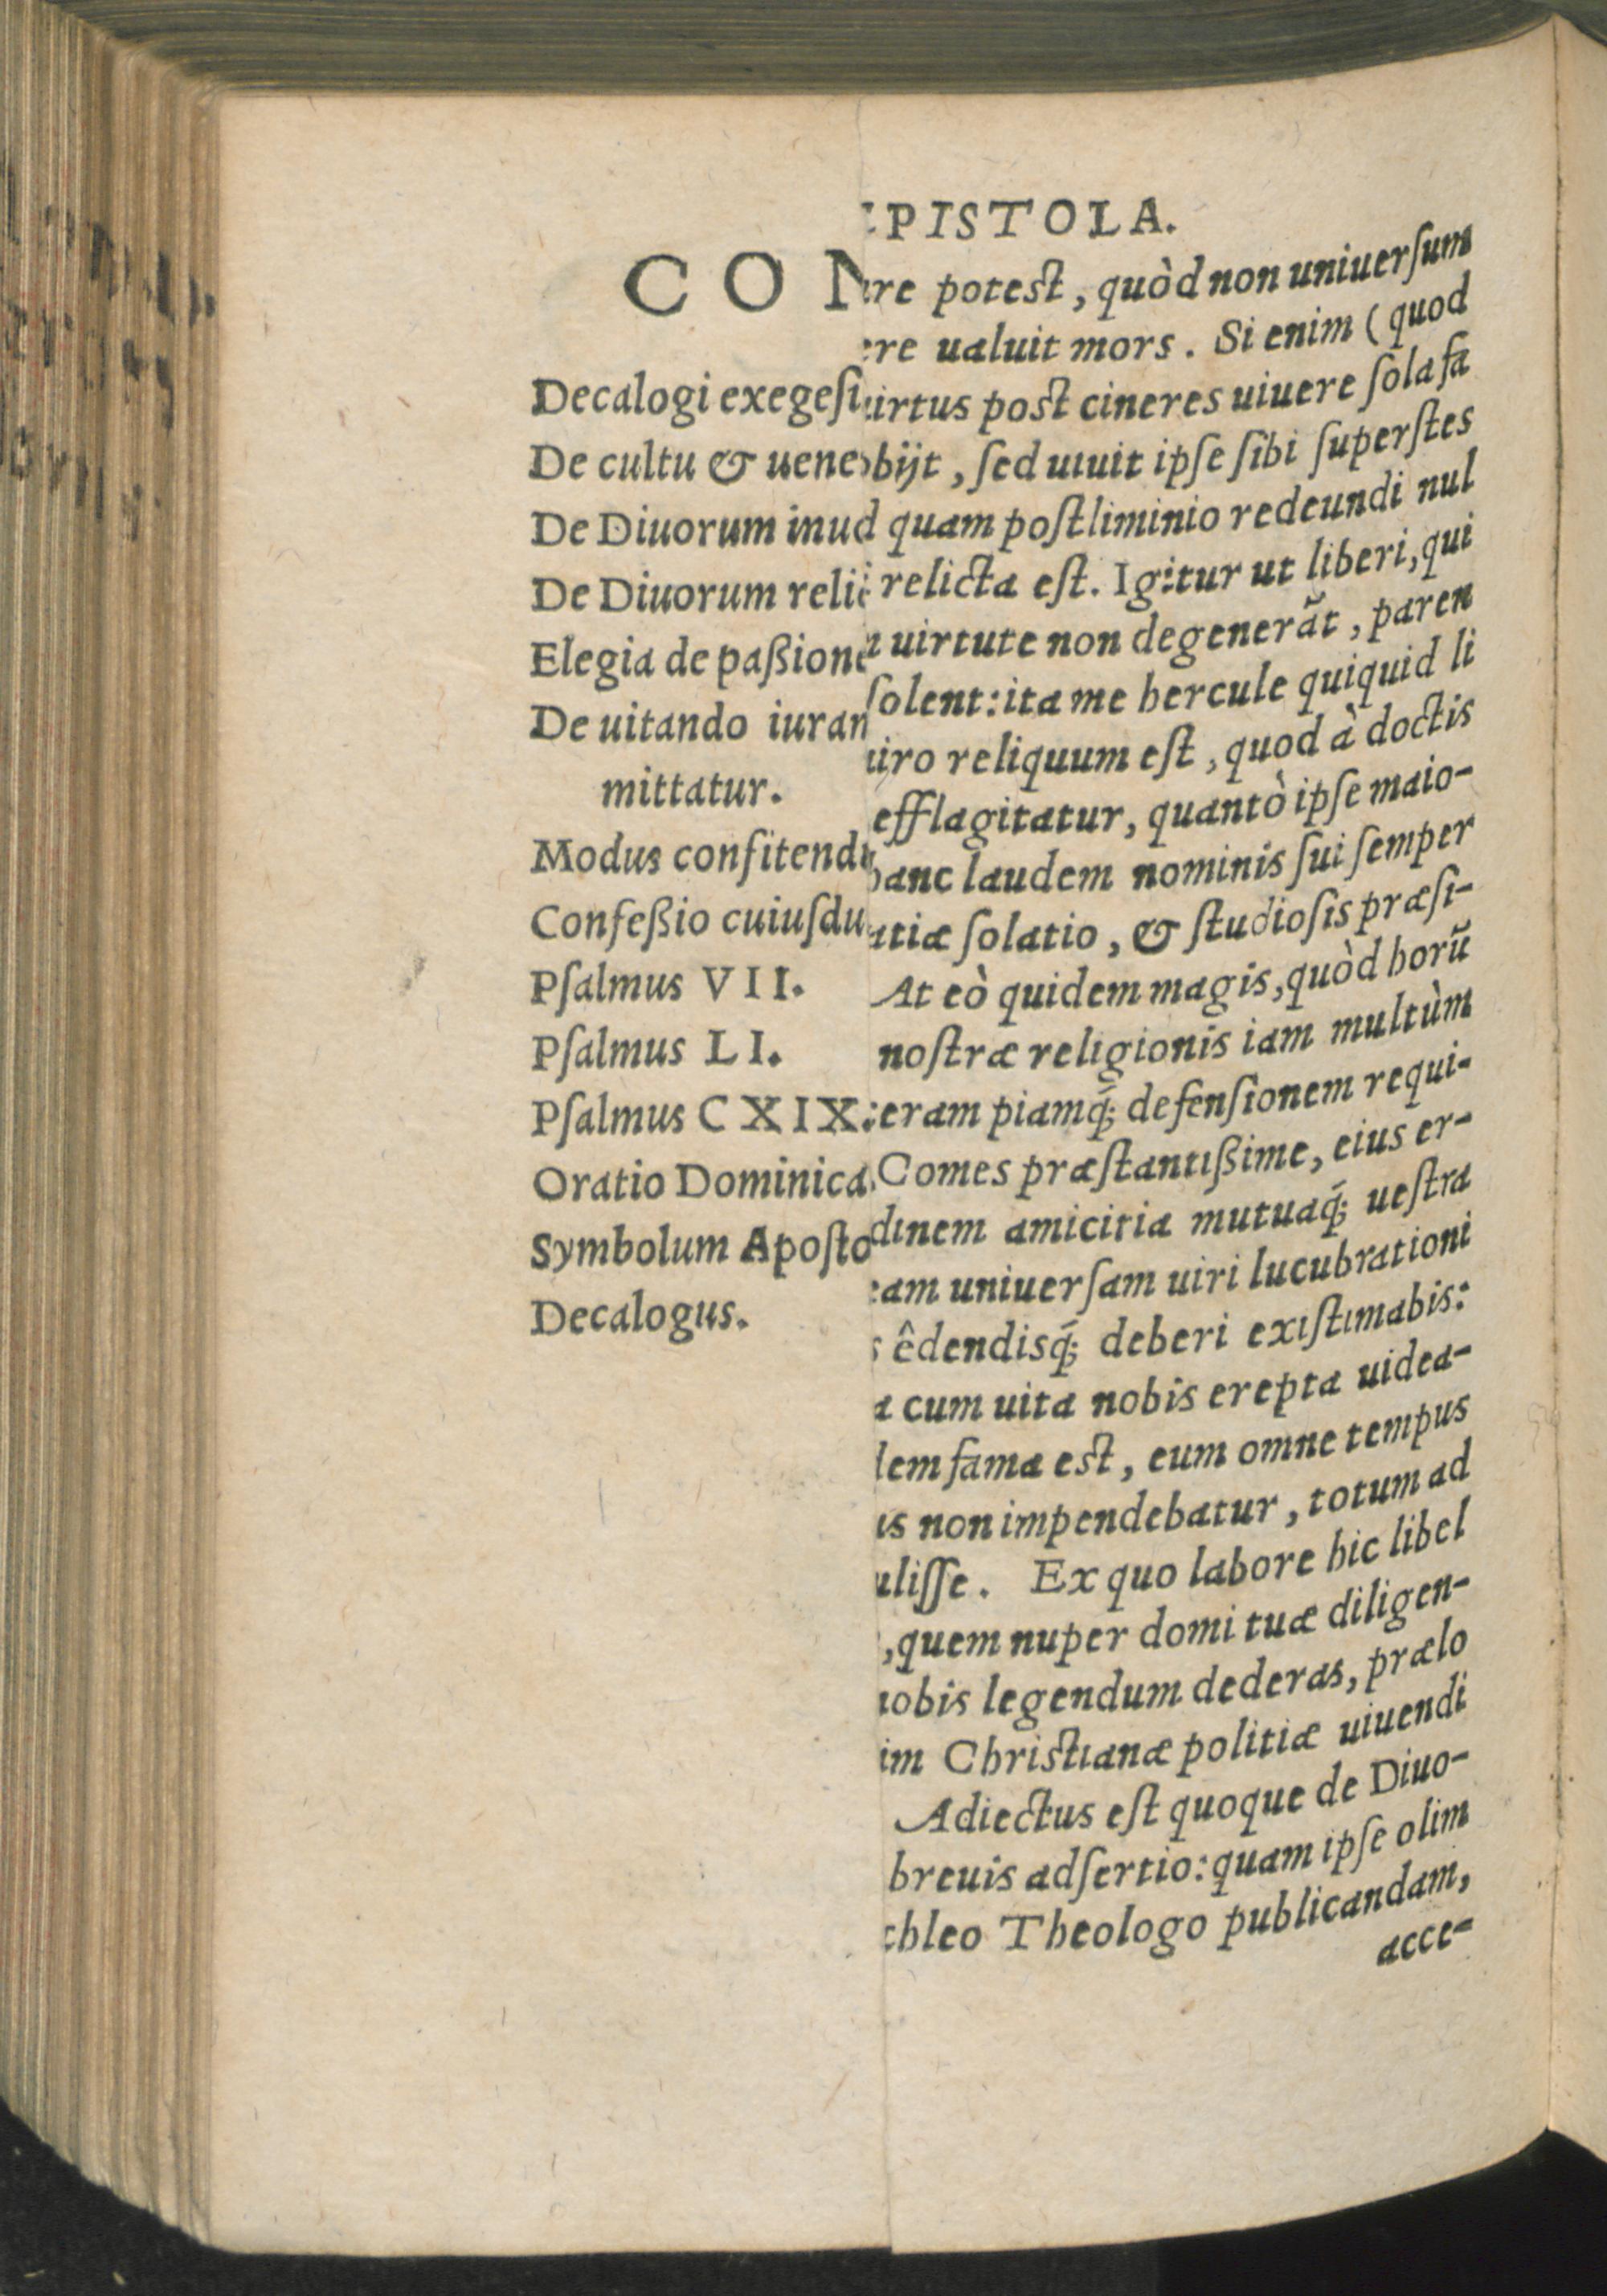 CON
Decalogi exegeſi
De cultu & uene
De Diuorum inu
De Diuorum reli
Elegia de paßion
De uitando iuran
mittatur.
Modus confitend
Confeßio cuiuſdu
Pſalmus VII.
Pſalmus LI.
Pſalmus CXIX.
Oratio Dominica
Symbolum Apoſto
Decalogus.
EPISTOLA.
are potest, quòd non uniuerſum
ere ualuit mors. Si enim (quod
uirtus post cineres uiuere ſola fa
obijt, ſed uiuit ipſe ſibi ſuperſtes
d quam poſtliminio redeundi nul
relicta eſt. Igitur ut liberi, qui
a uirtute non degenerãt, paren
ſolent: ita me hercule quiquid li
uiro reliquum eſt, quod à doctis
efflagitatur, quantò ipſe maio-
hanc laudem nominis ſui ſemper
atiæ ſolatio, & ſtudioſis præſi-
At eò quidem magis, quòd horũ
noſtræ religionis iam multùm
eram piamq́; defenſionem requi-
Comes præſtantißime, eius er-
dinem amicitia mutuaq́; ueſtra
eam uniuerſam uiri lucubrationi
s êdendisq́; deberi exiſtimabis:
a cum uita nobis erepta uidea-
dem fama est, eum omne tempus
is non impendebatur, totum ad
uliſſe. Ex quo labore hic libel
, quem nuper domi tuæ diligen-
nobis legendum dederas, prælo
im Christianæ politiæ uiuendi
Adiectus eſt quoque de Diuo-
breuis adſertio: quam ipſe olim
chleo Theologo publicandam,
acce-